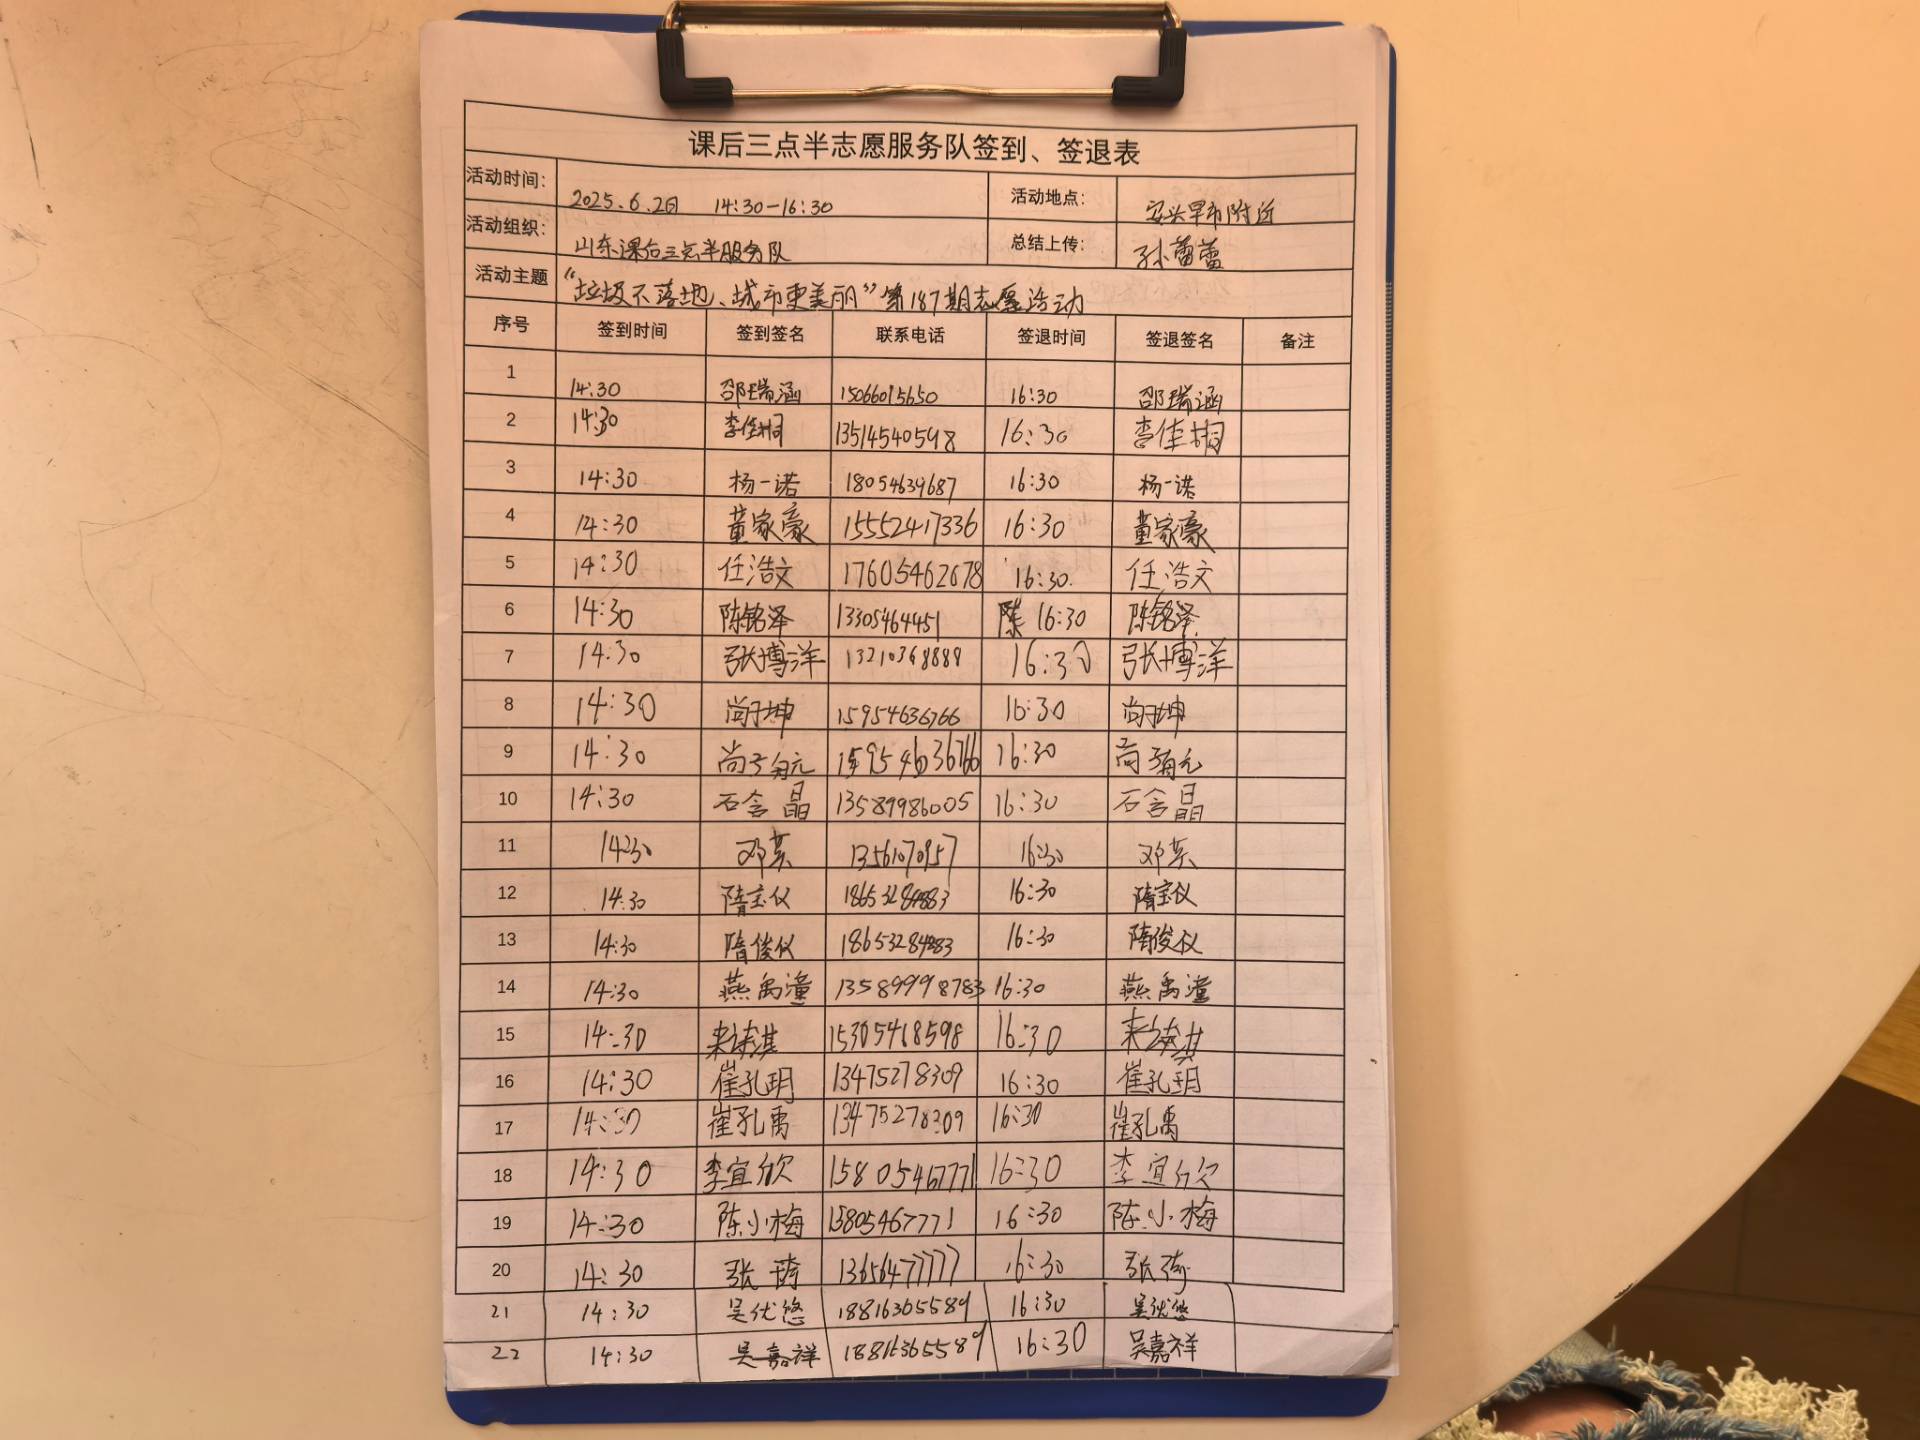 课后三点半志愿服务队签到、签退表
活动时间: 2025.6.2日 14:30-16:30 活动地点: 安兴早市附近
活动组织: 山东课后三点半服务队 总结上传: 孙蕾蕾
活动主题 “垃圾不落地、城市更美丽”第187期志愿活动
序号 签到时间 签到签名 联系电话 签退时间 签退签名 备注
1 14:30 邵瑞涵 15066015650 16:30 邵瑞涵
2 14:30 李佳桐 13514540598 16:30 李佳桐
3 14:30 杨一诺 18054639687 16:30 杨一诺
4 14:30 董家豪 15552417336 16:30 董家豪
5 14:30 任浩文 17605462678 16:30. 任浩文
6 14:30 陈铭泽 13305464451 16:30 陈铭泽
7 14:30 张博洋 13210368889 16:30 张博洋
8 14:30 尚于坤 15954636766 16:30 尚于坤
9 14:30 15954636766 16:30
10 14:30 石含晶 13589986005 16:30 石含晶
11 14:30 邓英 13561070957 16:30 邓英
12 14:30 隋宝仪 18653284883 16:30 隋宝仪
13 14:30 隋俊仪 18653284883 16:30 隋俊仪
14 14:30 燕禹潼 13589998783 16:30 燕禹潼
15 14:30 15305468598 16:30
16 14:30 崔孔玥 13475278309 16:30 崔孔玥
17 14:30 崔孔禹 13475278309 16:30 崔孔禹
18 14:30 李宜欣 15805467771 16:30 李宜欣
19 14:30 陈小梅 15805467771 16:30 陈小梅
20 14:30 张琦 13656477777 16:30 张琦
21 14:30 吴优悠 18816365589 16:30 吴优悠
22 14:30 吴嘉祥 18816365589 16:30 吴嘉祥